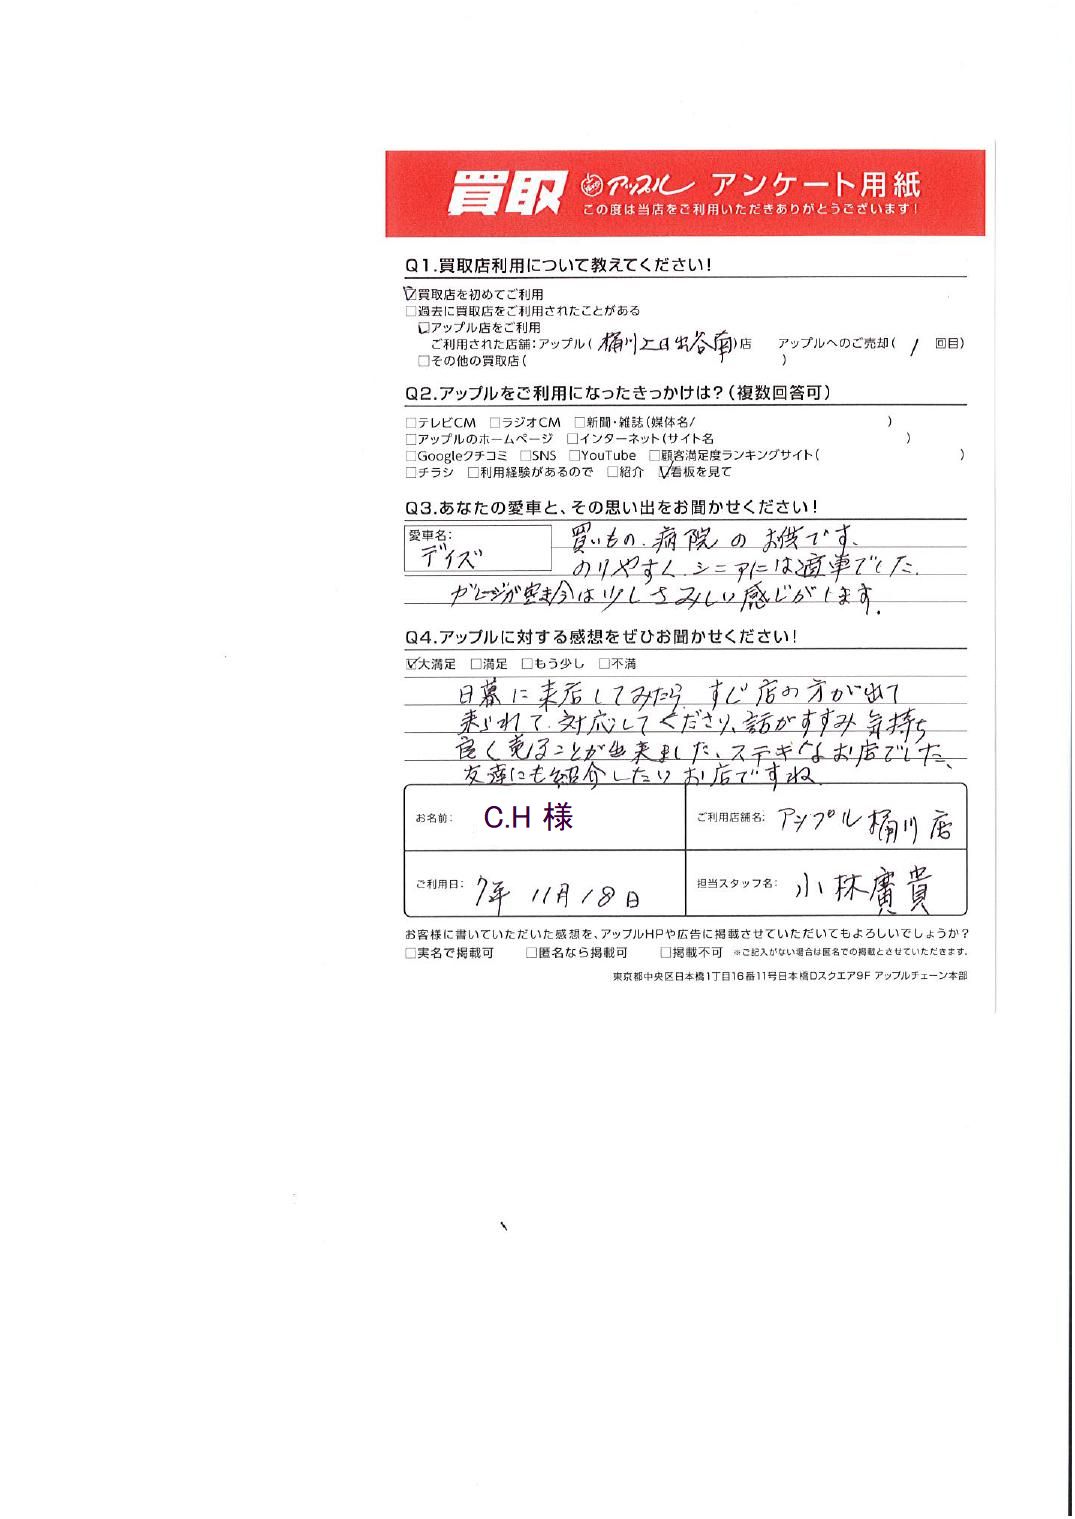 買取 アップル アンケート用紙
この度は当店をご利用いただきありがとうございます!
Q1.買取店利用について教えてください!
☑買取店を初めてご利用
□過去に買取店をご利用されたことがある
□アップル店をご利用
ご利用された店舗:アップル(桶川上日出谷南)店 アップルへのご売却( 1 回目)
□その他の買取店( )
Q2.アップルをご利用になったきっかけは?(複数回答可)
□テレビCM □ラジオCM □新聞・雑誌(媒体名/ )
□アップルのホームページ □インターネット(サイト名 )
□Googleクチコミ □SNS □YouTube □顧客満足度ランキングサイト( )
□チラシ □利用経験があるので □紹介 ☑看板を見て
Q3.あなたの愛車と、その思い出をお聞かせください!
愛車名:
デイズ
買いもの、病院のお供です、
のりやすく、シニアには適車でした.
ガレージが空き今は少しさみしい感じがします.
Q4.アップルに対する感想をぜひお聞かせください!
☑大満足 □満足 □もう少し □不満
日暮に来店してみたら すぐ店の方が出て
来られて、対応してくださり、話がすすみ気持ち
良く売ることが出来ました、ステキなお店でした、
友達にも紹介したいお店ですね
お名前: C.H 様 ご利用店舗名: アップル桶川店
ご利用日: 7年 11月18日 担当スタッフ名: 小林廣貴
お客様に書いていただいた感想を、アップルHPや広告に掲載させていただいてもよろしいでしょうか?
□実名で掲載可 □匿名なら掲載可 □掲載不可 ※ご記入がない場合は匿名での掲載とさせていただきます。
東京都中央区日本橋1丁目16番11号日本橋Dスクエア9F アップルチェーン本部